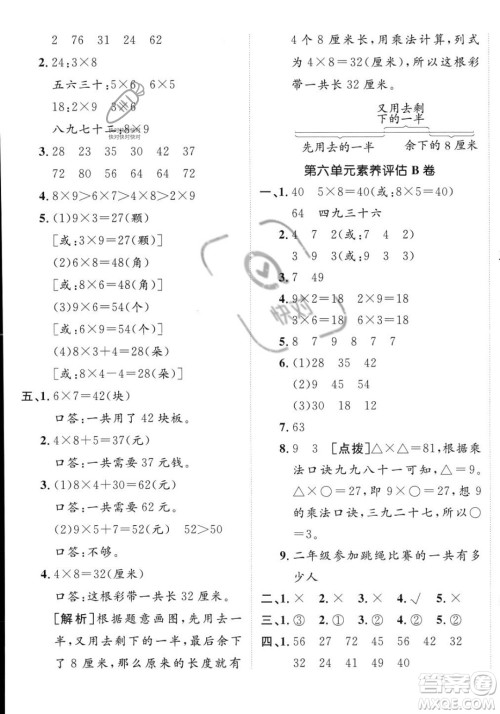 2 76 31 20 24 54
2. 24:3×8
五六三十:5×6 6×5
18:2×9
八九七十二:8×9
3. 24 28 30 27 63
72 80 56 32 18
4. 8×9＞7×9＞6×9＞6×8
5. (1)9×3=27(颗)
[或:3×9=27(颗)]
(2)6×8=48(角)
[或:8×6=48(角)]
(3)9×6=54(个)
[或:6×9=54(个)]
(4)8×3+4=28(朵)
[或:8×4-4=28(朵)]
五、1. 6×7=42(块)
口答:一共用了 42 块板。
2. 4×8+5=37(元)
口答:一共需要 37 元钱。
3. (1)8×4-2=30(元)
口答:一共需要 30 元。
(2)9×5+7=52(元) 52＞50
口答:不够。
4. 4×8=32(厘米)
口答:这根彩带一共长 32 厘米。
[解析]根据题意画图。先用去
一半,又用去剩下的一半,余下
8 厘米,那么原来的长度就有
4 个 8 厘米长,用乘法计算,列式
为 4×8=32(厘米),所以这根彩
带一共长 32 厘米。
又用去剩
下的一半
先用去一半 余下的 8 厘米
第六单元素养评估 B 卷
一、1. 40 5×8=40(或8×5=40)
64 四九三十六
2. 4 7 2 7 9 3
3. 7 49
4. 9×2=18 3×6=18
6×3=18 2×9=18
5. 8 7 9 8
6. (1)28 35 42
(2)9 18 54
7. 63
8. 9 3 [点拨]△×△=81,根据
乘法口诀九九八十一可知△=
9。○×△=27,可以根据△=9
的乘法口诀,三九二十七,所以
○=3。
9. 二年级参加跳绳比赛的一共有多
少人
二、1. × 2. × 3. √ 4. √
三、1. ③ 2. ① 3. ③ 4. ①
四、1. 56 27 72 56 32 32
45 37 40 24 6 47